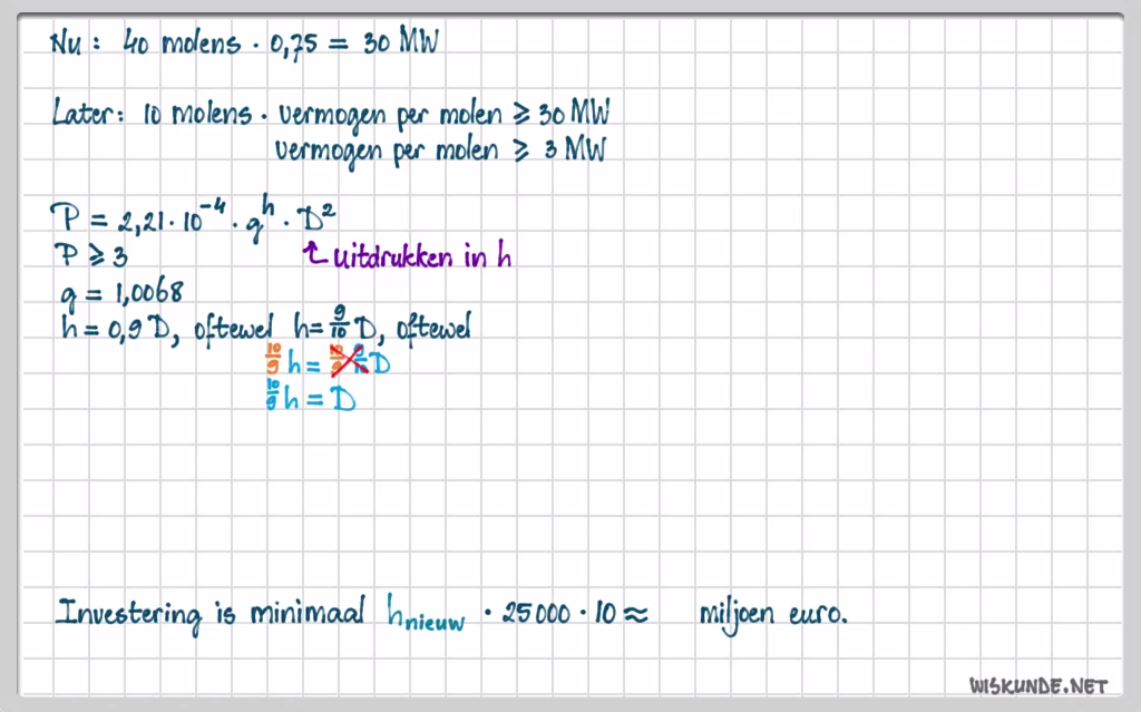 Nu: 40 molens · 0,75 = 30 MW
Later: 10 molens · vermogen per molen ⩾ 30 MW
vermogen per molen ⩾ 3 MW
P = 2,21 · 10⁻⁴ · gʰ · D²
P ⩾ 3 ↑ uitdrukken in h
g = 1,0068
h = 0,9 D, oftewel h = 9/10 D, oftewel
10/9 h = 10/9 · 9/10 D
10/9 h = D
Investering is minimaal h nieuw · 25000 · 10 ≈ miljoen euro.
WISKUNDE.NET